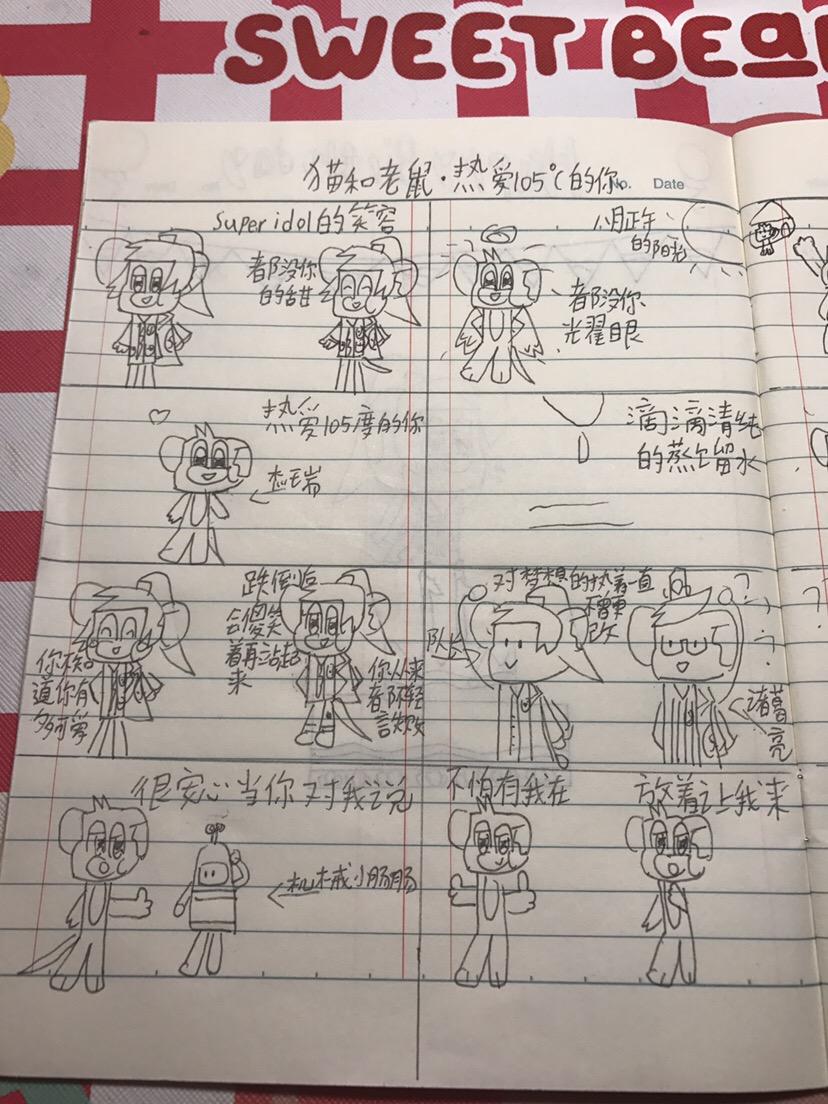 SWEET BEa
猫和老鼠·热爱105°C的你
No.
Date
Super idol的笑容
都没你
的甜
八月正午
的阳光
都没你
光耀眼
热爱105度的你
杰瑞
滴滴清纯
的蒸馏水
你不知
道你有
多可爱
跌倒后
会傻笑
着再站起
来
你从来
都不轻
言失败
对梦想的执着一直
不曾更
改
队长
诸葛
亮
很安心当你对我说
机械小肠肠
不怕有我在
放着让我来